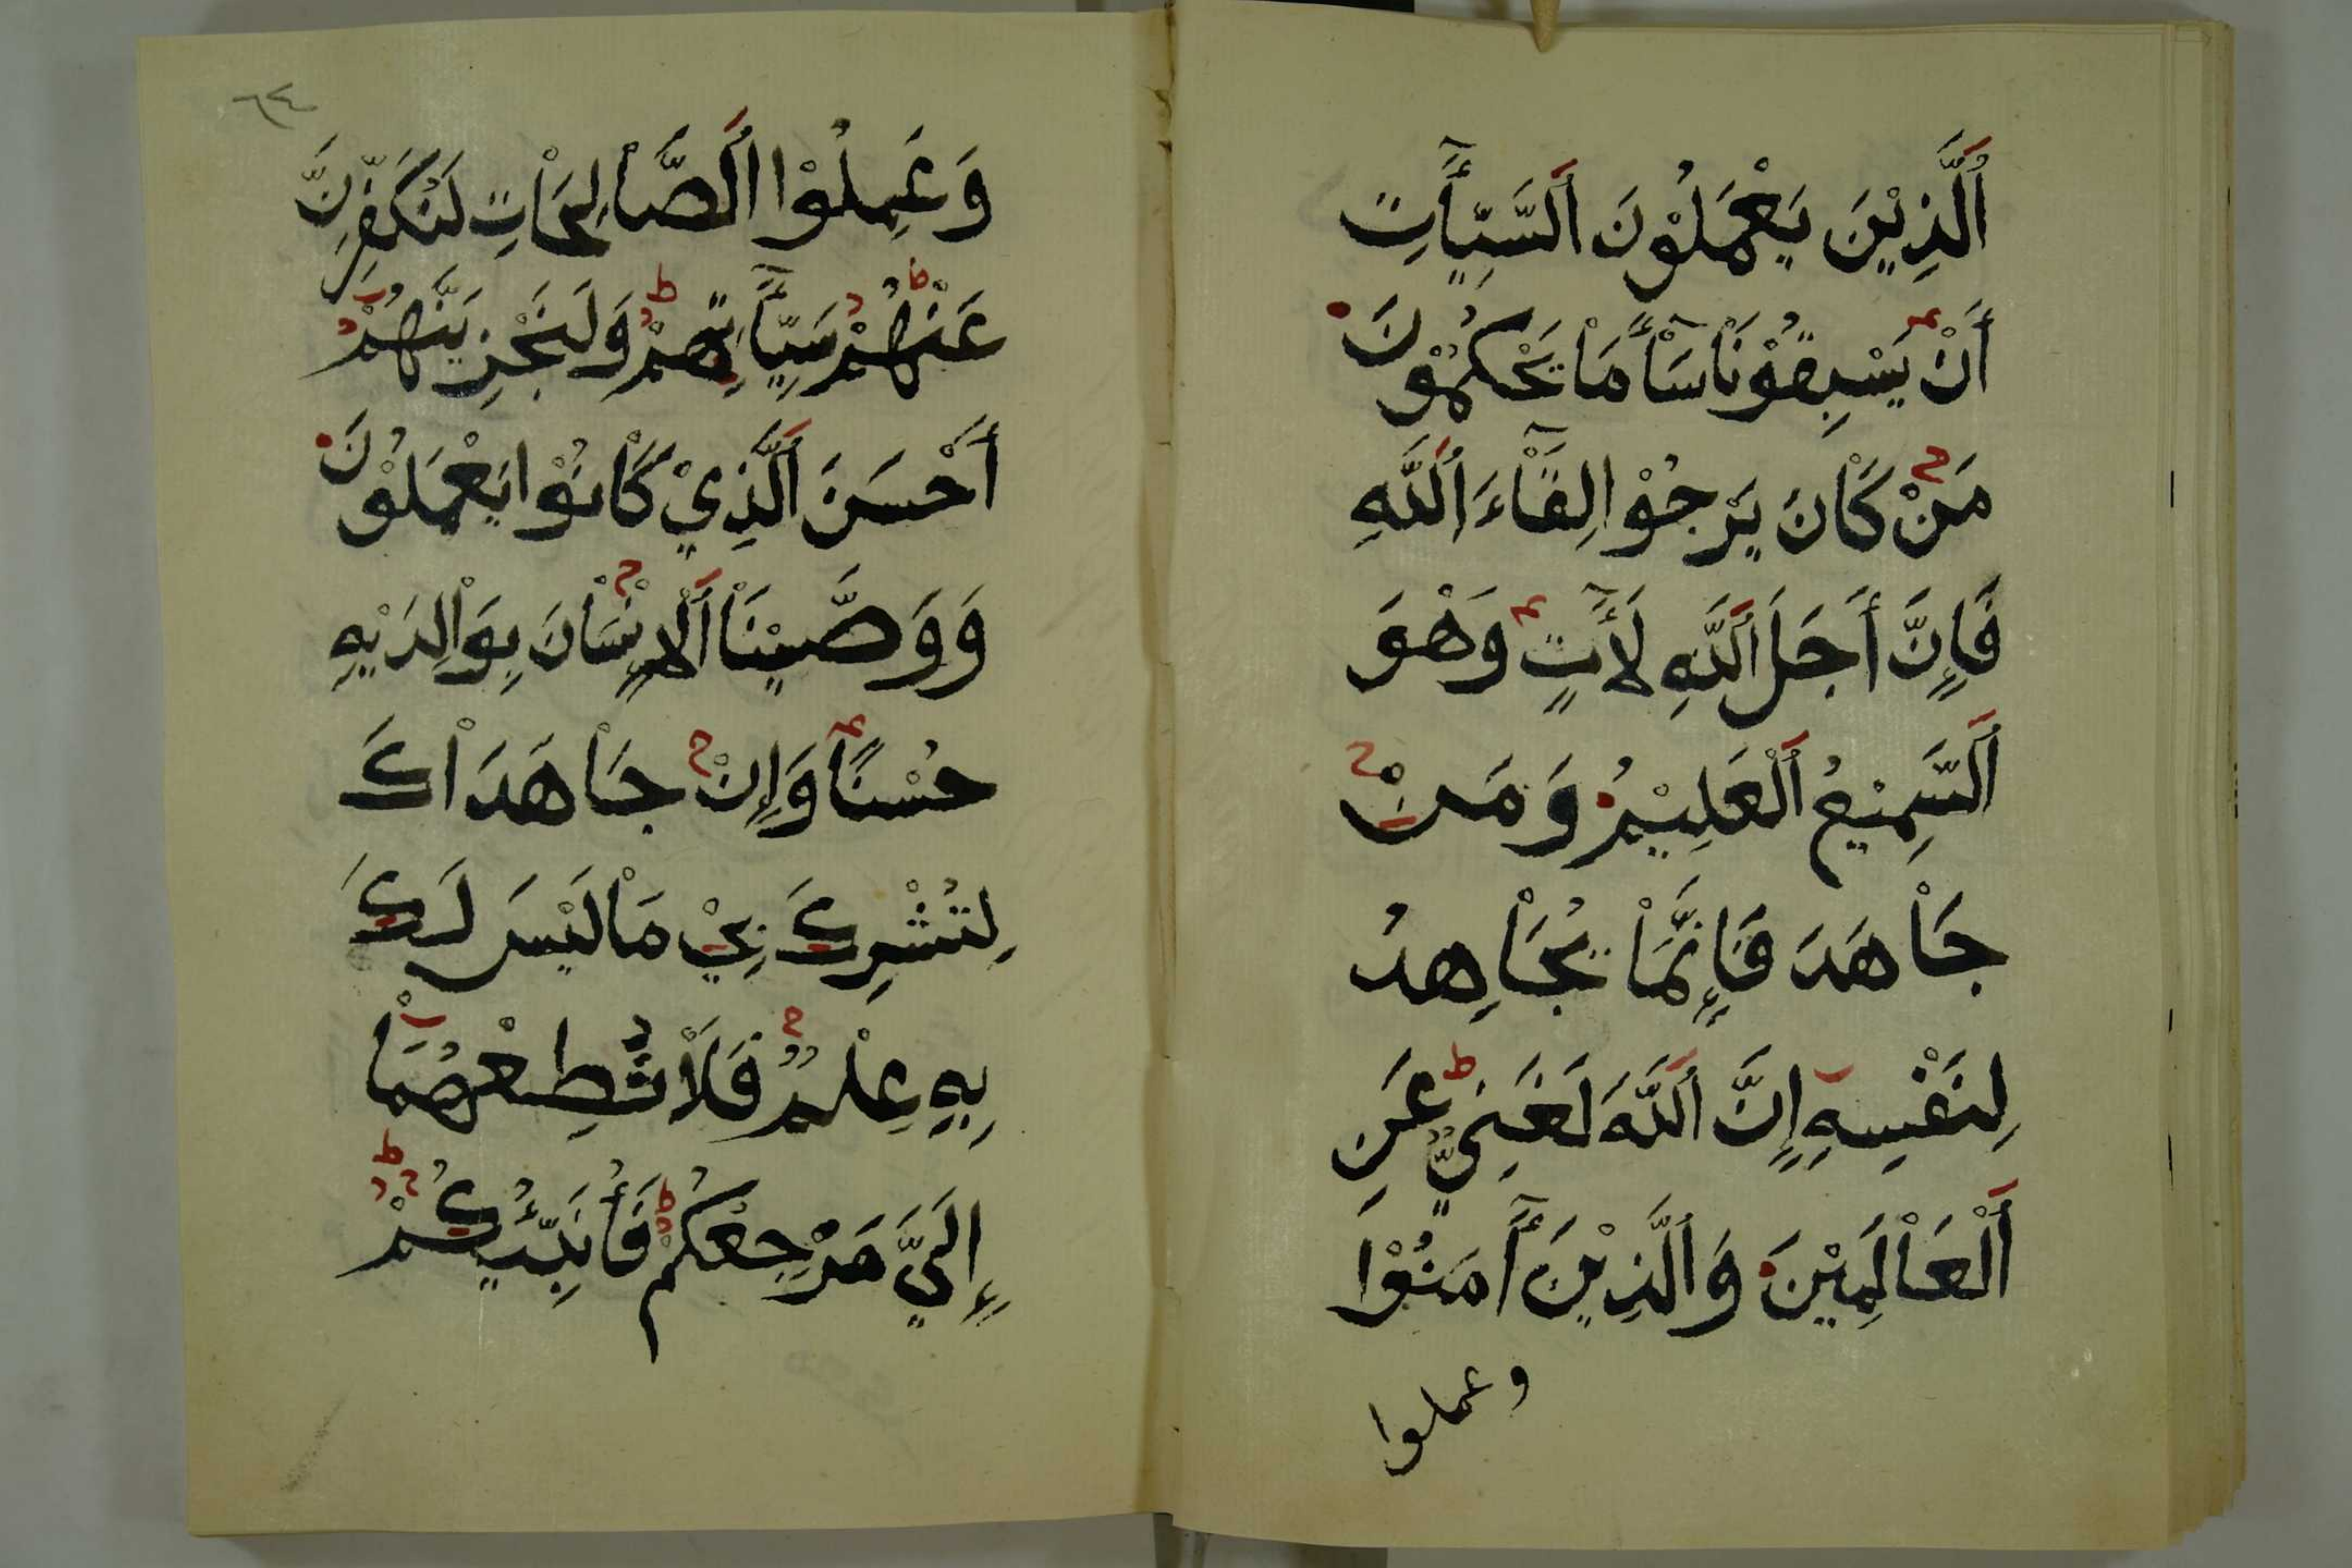 اَلَّذِيْنَ يَعْمَلُوْنَ اَلسَّيِّأٓتِ
أَنْ يَسْبِقُوْنَاْ سَآْءَ مَاْ يَحْكُمُوْنَ
مَنْ كَاْنَ يَرْجُوْا لِقَآْءَ اَللَّهِ
فَإِنَّ أَجَلَ اَللَّهِ لَأٓتٍ وَهْوَ
اَلسَّمِيْعُ اَلْعَلِيْمُ وَمَنْ
جَاْهَدَ فَإِنَّمَاْ يُجَاْهِدُ
لِنَفْسِهِ إِنَّ اَللَّهَ لَغَنِيٌّ عَنِ
اَلْعَاْلَمِيْنَ وَاَلَّذِيْنَ أٓمَنُوْا
وعملوا
٦٤
وَعَمِلُوْا اَلصَّاْلِحَاْتِ لَنُكَفِّرَنَّ
عَنْهُمْ سَيِّأٓتِهِمْ وَلَنَجْزِيَنَّهُمْ
أَحْسَنَ اَلَّذِيْ كَاْنُوْا يَعْمَلُوْنَ
وَوَصَّيْنَاْ اَلْإِنْسَاْنَ بِوَاْلِدَيْهِ
حُسْنًا وَإِنْ جَاْهَدَاْكَ
لِتُشْرِكَ بِيْ مَاْ لَيْسَ لَكَ
بِهِ عِلْمٌ فَلَاْ تُطِعْهُمَاْ
إِلَيَّ مَرْجِعُكُمْ فَأُنَبِّئُكُمْ